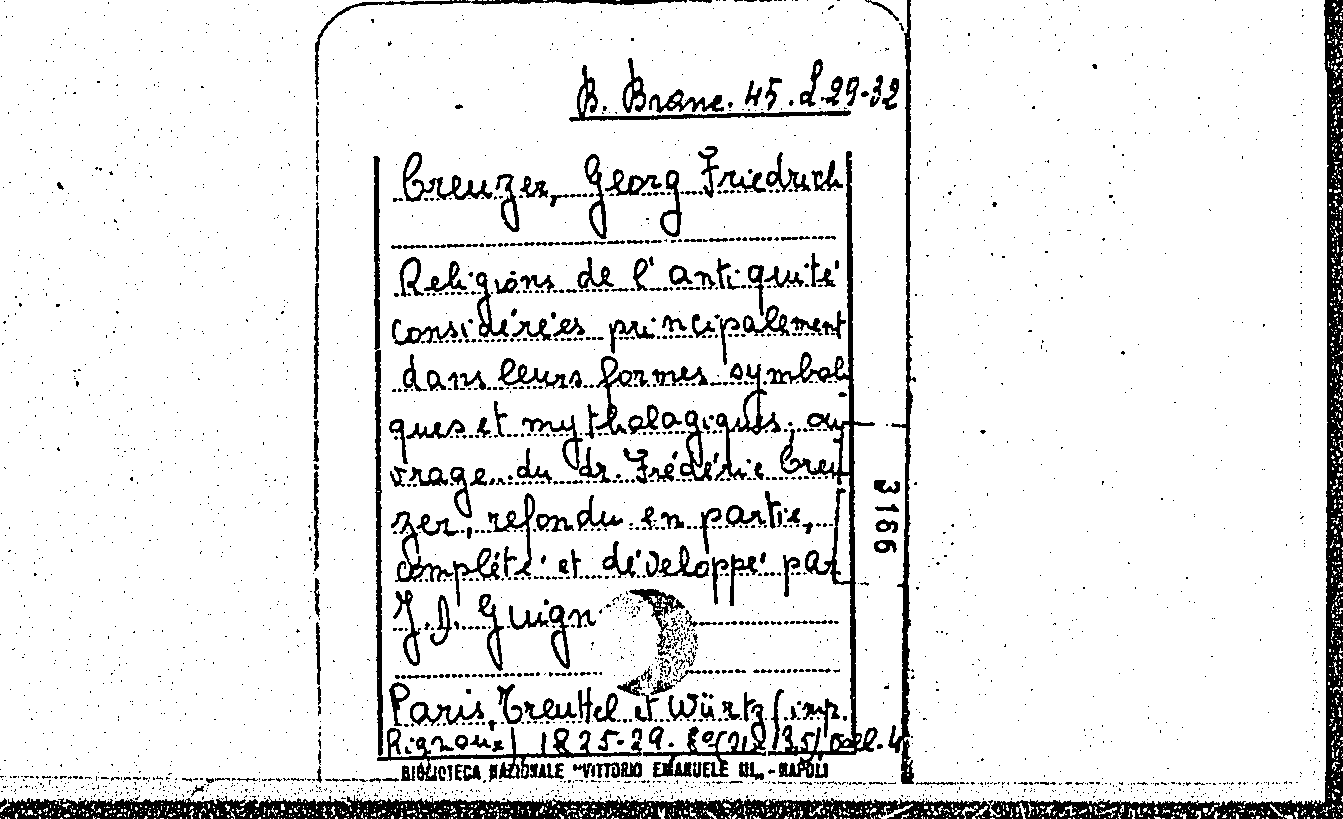 B. Branc. 45. L 29-32
Creuzer, Georg Friedrich
Religions de l'antiquité
considérées principalement
dans leurs formes symboli
ques et mythologiques, ou
vrage du dr. Frédéric Creu
zer, refondu en partie,
complété et développé par
J. D. Guign
Paris, Treuttel et Würtz (imp.
Rignoux) 1825-29. 8º
3166
BIBLIOTECA NAZIONALE "VITTORIO EMANUELE III„ - NAPOLI